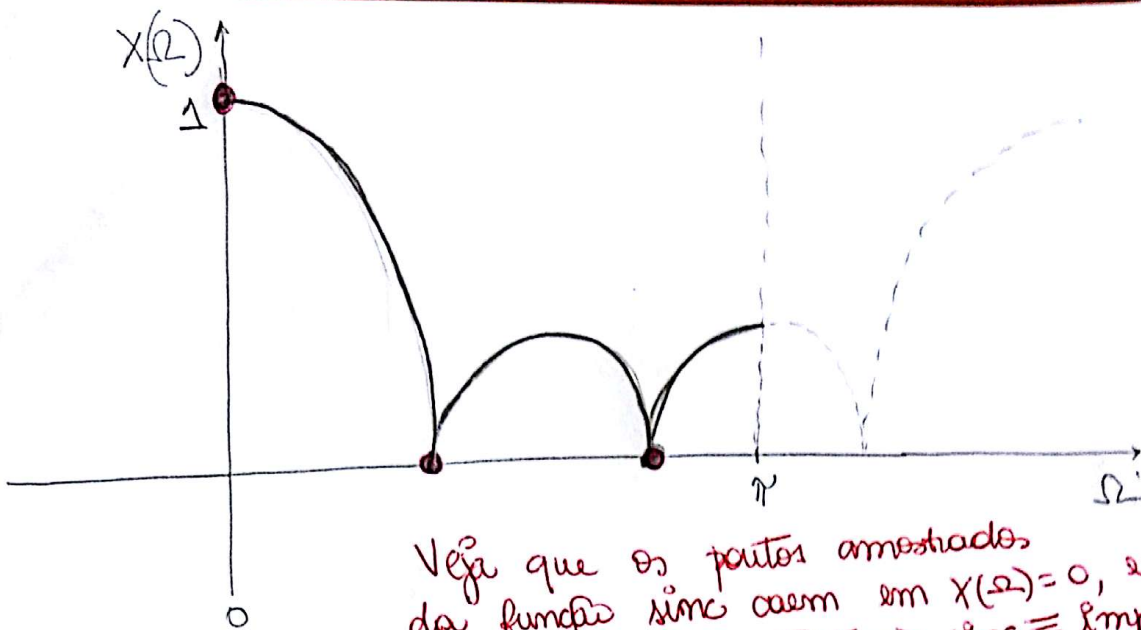 X(Ω)
1
0
π
Ω
Veja que os pontos amostrados
da função sinc caem em X(Ω)=0, e